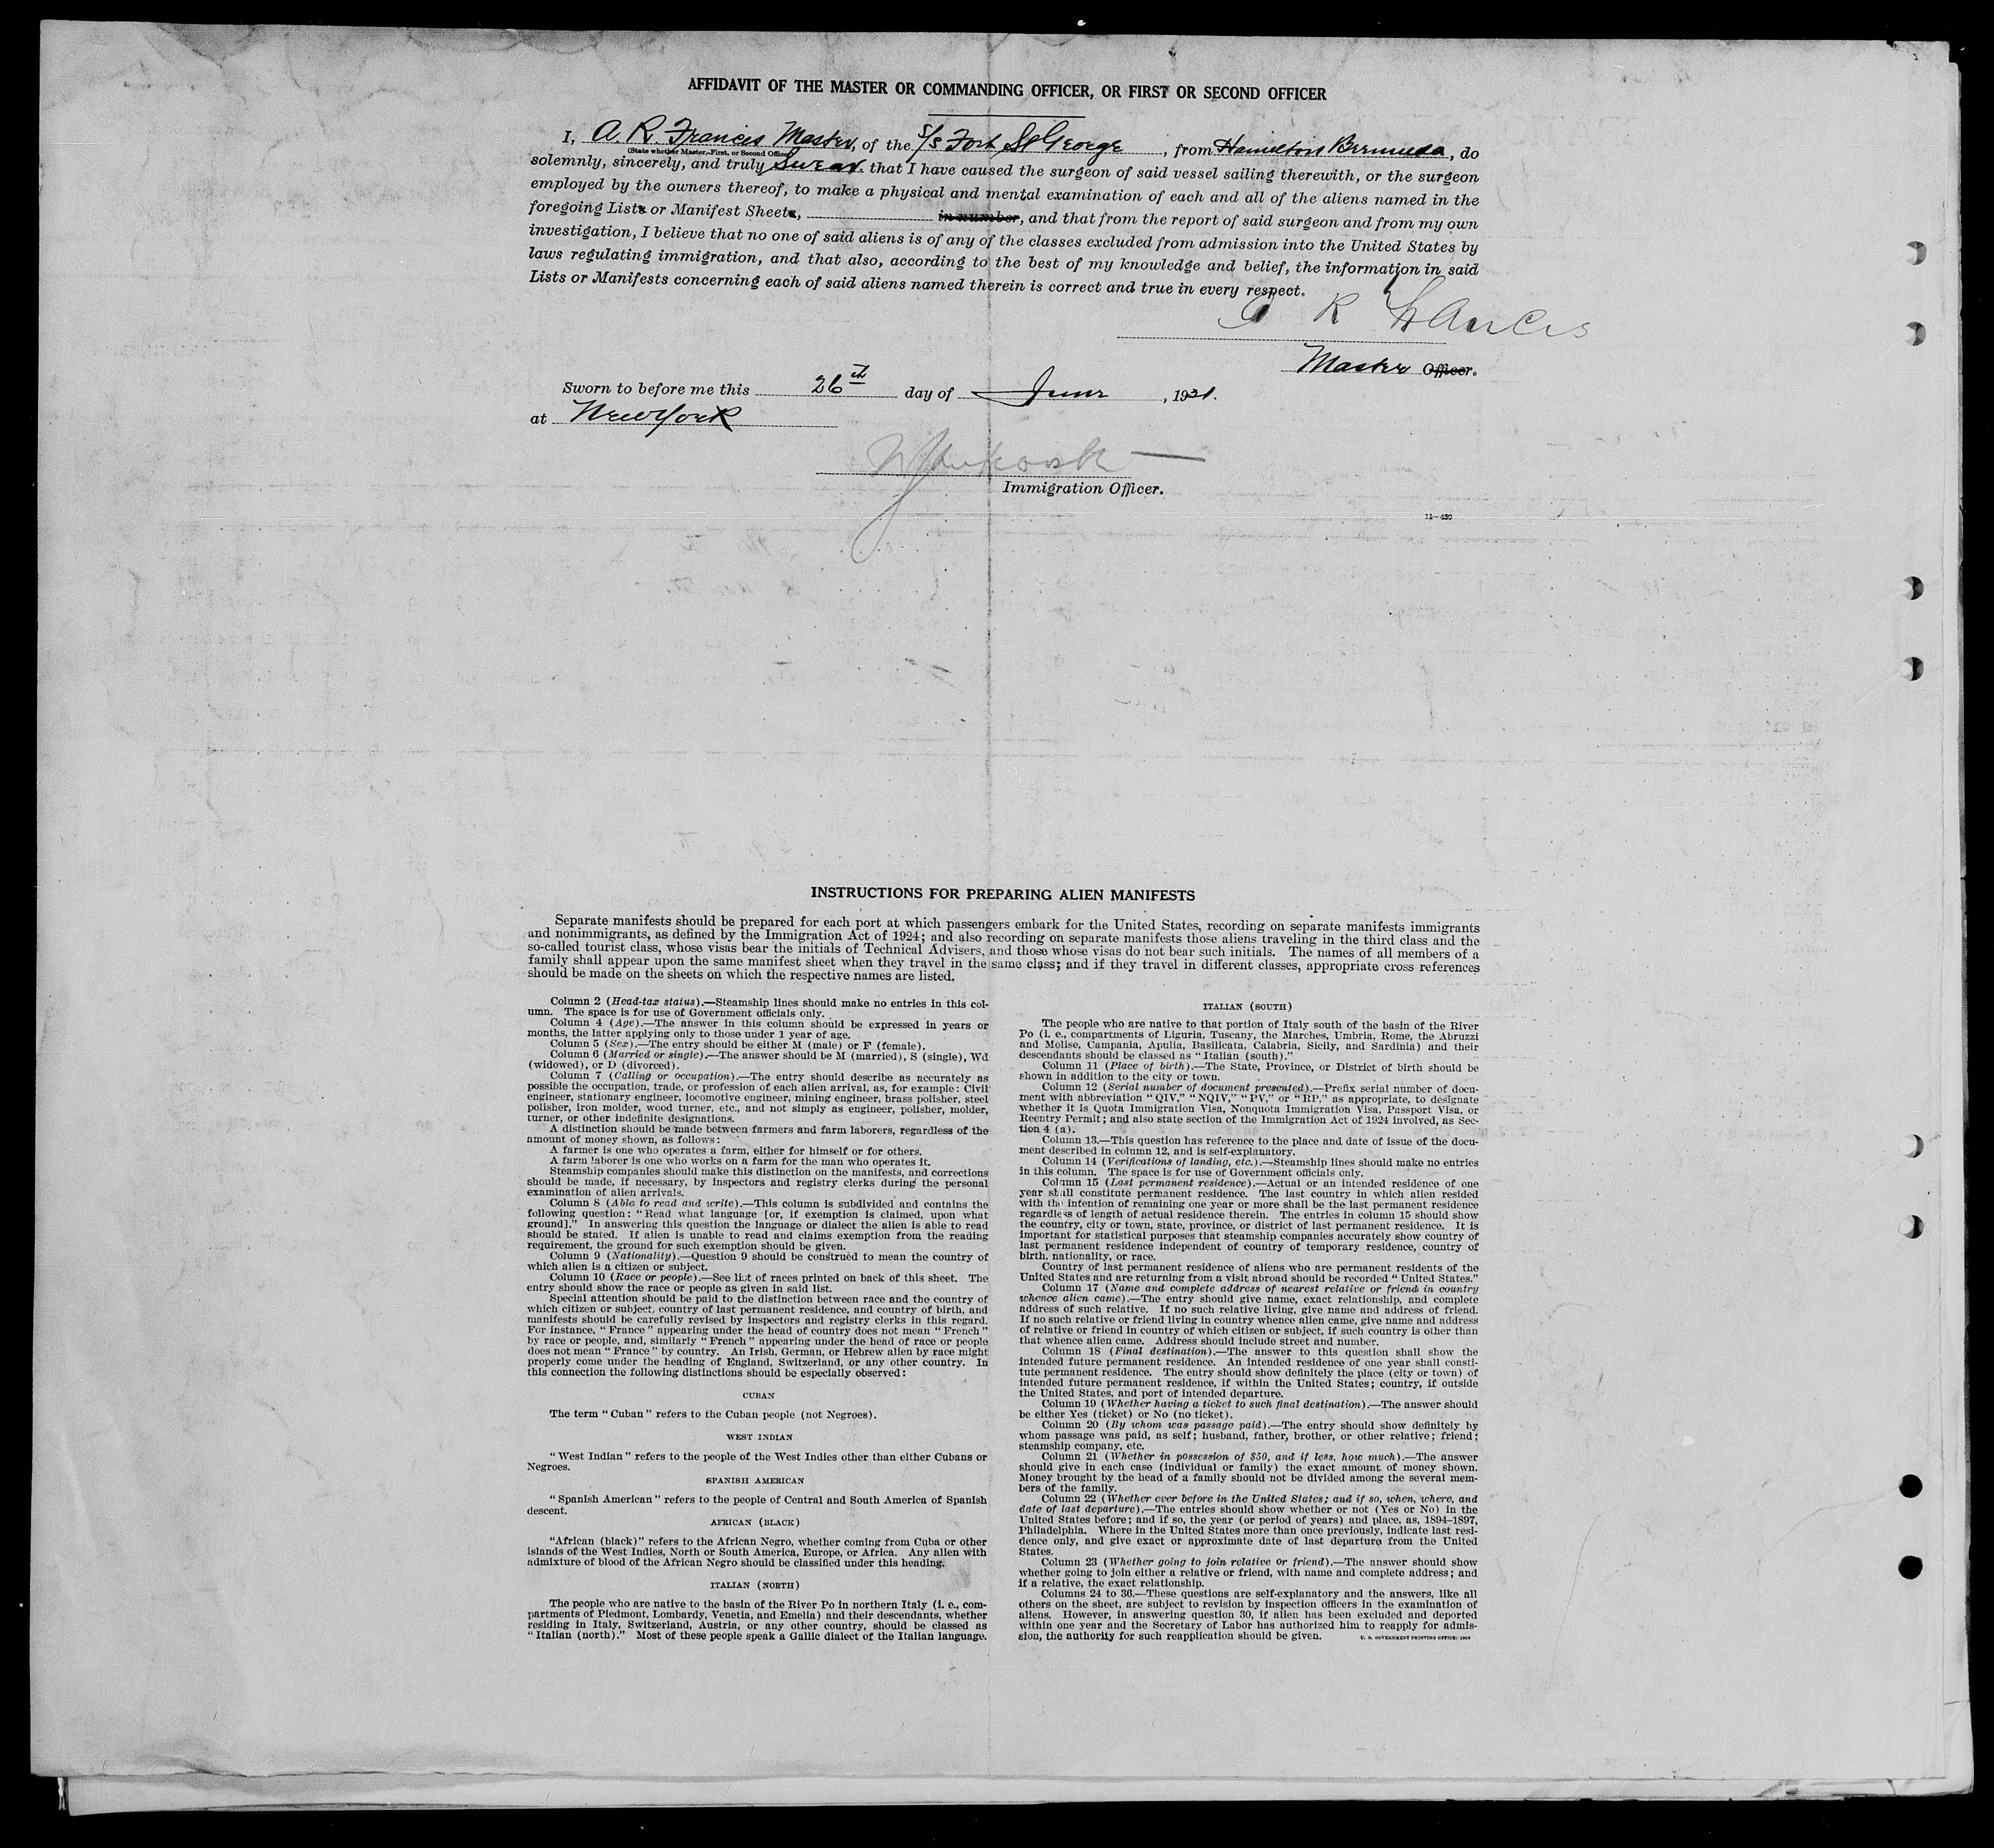 AFFIDAVIT OF THE MASTER OR COMMANDING OFFICER, OR FIRST OR SECOND OFFICER
I, A. R. Francis Master, of the S/S Fort St George, from Hamilton Bermuda, do
(State whether Master, First, or Second Officer)
solemnly, sincerely, and truly Swear that I have caused the surgeon of said vessel sailing therewith, or the surgeon
employed by the owners thereof, to make a physical and mental examination of each and all of the aliens named in the
foregoing Lists or Manifest Sheets, in number, and that from the report of said surgeon and from my own
investigation, I believe that no one of said aliens is of any of the classes excluded from admission into the United States by
laws regulating immigration, and that also, according to the best of my knowledge and belief, the information in said
Lists or Manifests concerning each of said aliens named therein is correct and true in every respect.
A R Francis
Master Officer.
Sworn to before me this 26th day of June, 1931.
at New York
Immigration Officer.
14—430
INSTRUCTIONS FOR PREPARING ALIEN MANIFESTS
Separate manifests should be prepared for each port at which passengers embark for the United States, recording on separate manifests immigrants
and nonimmigrants, as defined by the Immigration Act of 1924; and also recording on separate manifests those aliens traveling in the third class and the
so-called tourist class, whose visas bear the initials of Technical Advisers, and those whose visas do not bear such initials. The names of all members of a
family shall appear upon the same manifest sheet when they travel in the same class; and if they travel in different classes, appropriate cross references
should be made on the sheets on which the respective names are listed.
Column 2 (Head-tax status).—Steamship lines should make no entries in this col-
umn. The space is for use of Government officials only.
Column 4 (Age).—The answer in this column should be expressed in years or
months, the latter applying only to those under 1 year of age.
Column 5 (Sex).—The entry should be either M (male) or F (female).
Column 6 (Married or single).—The answer should be M (married), S (single), Wd
(widowed), or D (divorced).
Column 7 (Calling or occupation).—The entry should describe as accurately as
possible the occupation, trade, or profession of each alien arrival, as, for example: Civil
engineer, stationary engineer, locomotive engineer, mining engineer, brass polisher, steel
polisher, iron molder, wood turner, etc., and not simply as engineer, polisher, molder,
turner, or other indefinite designations.
A distinction should be made between farmers and farm laborers, regardless of the
amount of money shown, as follows:
A farmer is one who operates a farm, either for himself or for others.
A farm laborer is one who works on a farm for the man who operates it.
Steamship companies should make this distinction on the manifests, and corrections
should be made, if necessary, by inspectors and registry clerks during the personal
examination of alien arrivals.
Column 8 (Able to read and write).—This column is subdivided and contains the
following question: "Read what language [or, if exemption is claimed, upon what
ground]." In answering this question the language or dialect the alien is able to read
should be stated. If alien is unable to read and claims exemption from the reading
requirement, the ground for such exemption should be given.
Column 9 (Nationality).—Question 9 should be construed to mean the country of
which alien is a citizen or subject.
Column 10 (Race or people).—See list of races printed on back of this sheet. The
entry should show the race or people as given in said list.
Special attention should be paid to the distinction between race and the country of
which citizen or subject, country of last permanent residence, and country of birth, and
manifests should be carefully revised by inspectors and registry clerks in this regard.
For instance, "France" appearing under the head of country does not mean "French"
by race or people, and, similarly "French" appearing under the head of race or people
does not mean "France" by country. An Irish, German, or Hebrew alien by race might
properly come under the heading of England, Switzerland, or any other country. In
this connection the following distinctions should be especially observed:
CUBAN
The term "Cuban" refers to the Cuban people (not Negroes).
WEST INDIAN
"West Indian" refers to the people of the West Indies other than either Cubans or
Negroes.
SPANISH AMERICAN
"Spanish American" refers to the people of Central and South America of Spanish
descent.
AFRICAN (BLACK)
"African (black)" refers to the African Negro, whether coming from Cuba or other
islands of the West Indies, North or South America, Europe, or Africa. Any alien with
admixture of blood of the African Negro should be classified under this heading.
ITALIAN (NORTH)
The people who are native to the basin of the River Po in northern Italy (i. e., com-
partments of Piedmont, Lombardy, Venetia, and Emelia) and their descendants, whether
residing in Italy, Switzerland, Austria, or any other country, should be classed as
"Italian (north)." Most of these people speak a Gallic dialect of the Italian language.
ITALIAN (SOUTH)
The people who are native to that portion of Italy south of the basin of the River
Po (i. e., compartments of Liguria, Tuscany, the Marches, Umbria, Rome, the Abruzzi
and Molise, Campania, Apulia, Basilicata, Calabria, Sicily, and Sardinia) and their
descendants should be classed as "Italian (south)."
Column 11 (Place of birth).—The State, Province, or District of birth should be
shown in addition to the city or town.
Column 12 (Serial number of document presented).—Prefix serial number of docu-
ment with abbreviation "QIV," "NQIV," "PV," or "RP," as appropriate, to designate
whether it is Quota Immigration Visa, Nonquota Immigration Visa, Passport Visa, or
Reentry Permit; and also state section of the Immigration Act of 1924 involved, as Sec-
tion 4 (a).
Column 13.—This question has reference to the place and date of issue of the docu-
ment described in column 12, and is self-explanatory.
Column 14 (Verifications of landing, etc.).—Steamship lines should make no entries
in this column. The space is for use of Government officials only.
Column 15 (Last permanent residence).—Actual or an intended residence of one
year shall constitute permanent residence. The last country in which alien resided
with the intention of remaining one year or more shall be the last permanent residence
regardless of length of actual residence therein. The entries in column 15 should show
the country, city or town, state, province, or district of last permanent residence. It is
important for statistical purposes that steamship companies accurately show country of
last permanent residence independent of country of temporary residence, country of
birth, nationality, or race.
Country of last permanent residence of aliens who are permanent residents of the
United States and are returning from a visit abroad should be recorded "United States."
Column 17 (Name and complete address of nearest relative or friend in country
whence alien came).—The entry should give name, exact relationship, and complete
address of such relative. If no such relative living, give name and address of friend.
If no such relative or friend living in country whence alien came, give name and address
of relative or friend in country of which citizen or subject, if such country is other than
that whence alien came. Address should include street and number.
Column 18 (Final destination).—The answer to this question shall show the
intended future permanent residence. An intended residence of one year shall consti-
tute permanent residence. The entry should show definitely the place (city or town) of
intended future permanent residence, if within the United States; country, if outside
the United States, and port of intended departure.
Column 19 (Whether having a ticket to such final destination).—The answer should
be either Yes (ticket) or No (no ticket).
Column 20 (By whom was passage paid).—The entry should show definitely by
whom passage was paid, as self; husband, father, brother, or other relative; friend;
steamship company, etc.
Column 21 (Whether in possession of $50, and if less, how much).—The answer
should give in each case (individual or family) the exact amount of money shown.
Money brought by the head of a family should not be divided among the several mem-
bers of the family.
Column 22 (Whether ever before in the United States; and if so, when, where, and
date of last departure).—The entries should show whether or not (Yes or No) in the
United States before; and if so, the year (or period of years) and place, as, 1894–1897,
Philadelphia. Where in the United States more than once previously, indicate last resi-
dence only, and give exact or approximate date of last departure from the United
States.
Column 23 (Whether going to join relative or friend).—The answer should show
whether going to join either a relative or friend, with name and complete address; and
if a relative, the exact relationship.
Columns 24 to 36.—These questions are self-explanatory and the answers, like all
others on the sheet, are subject to revision by inspection officers in the examination of
aliens. However, in answering question 30, if alien has been excluded and deported
within one year and the Secretary of Labor has authorized him to reapply for admis-
sion, the authority for such reapplication should be given.
U. S. GOVERNMENT PRINTING OFFICE: